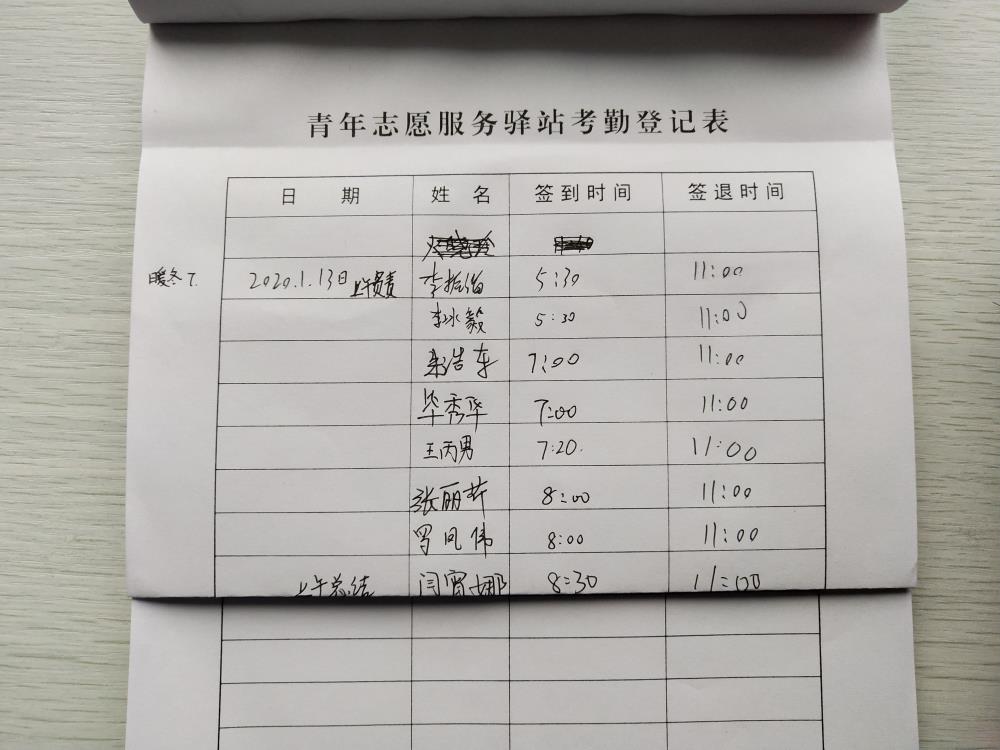 青年志愿服务驿站考勤登记表
日 期 姓 名 签到时间 签退时间
暖冬7. 2020.1.13日上午负责 李振宿 5:30 11:00
李冰毅 5:30 11:00
浩东 7:00 11:00
毕秀华 7:00 11:00
王丙男 7:20. 11:00
张丽芹 8:00 11:00
罗凤伟 8:00 11:00
上午总结 闫宵娜 8:30 11:00